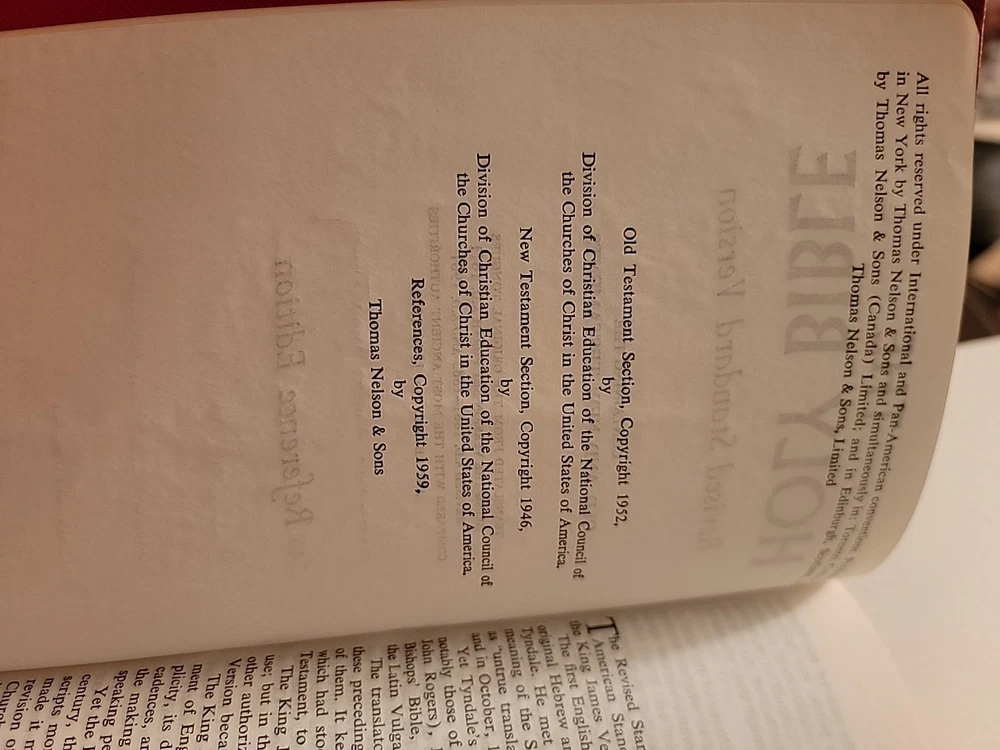 All rights reserved under International and Pan-American conventions
in New York by Thomas Nelson & Sons and simultaneously in
by Thomas Nelson & Sons (Canada) Limited; and in Edinburgh,
Thomas Nelson & Sons, Limited
Old Testament Section, Copyright 1952,
by
Division of Christian Education of the National Council of
the Churches of Christ in the United States of America.
New Testament Section, Copyright 1946,
by
Division of Christian Education of the National Council of
the Churches of Christ in the United States of America.
References, Copyright 1959,
by
Thomas Nelson & Sons
HOLY BIBLE
Revised Standard Version
Reference Edition
The Revised
American
the King James
The first English
original Hebrew
Tyndale. He met
meaning of the
as "untrue
and in October,
Yet Tyndale's
notably those of
John Rogers),
Bishops' Bible,
the Latin
The
these preceding
of them. It
which had
Testament, to
The King
use; but in
other
Version
The King
ment of
plicity, its
cadences,
the making
speaking
Yet the
century,
scripts
made it
revision
Church of